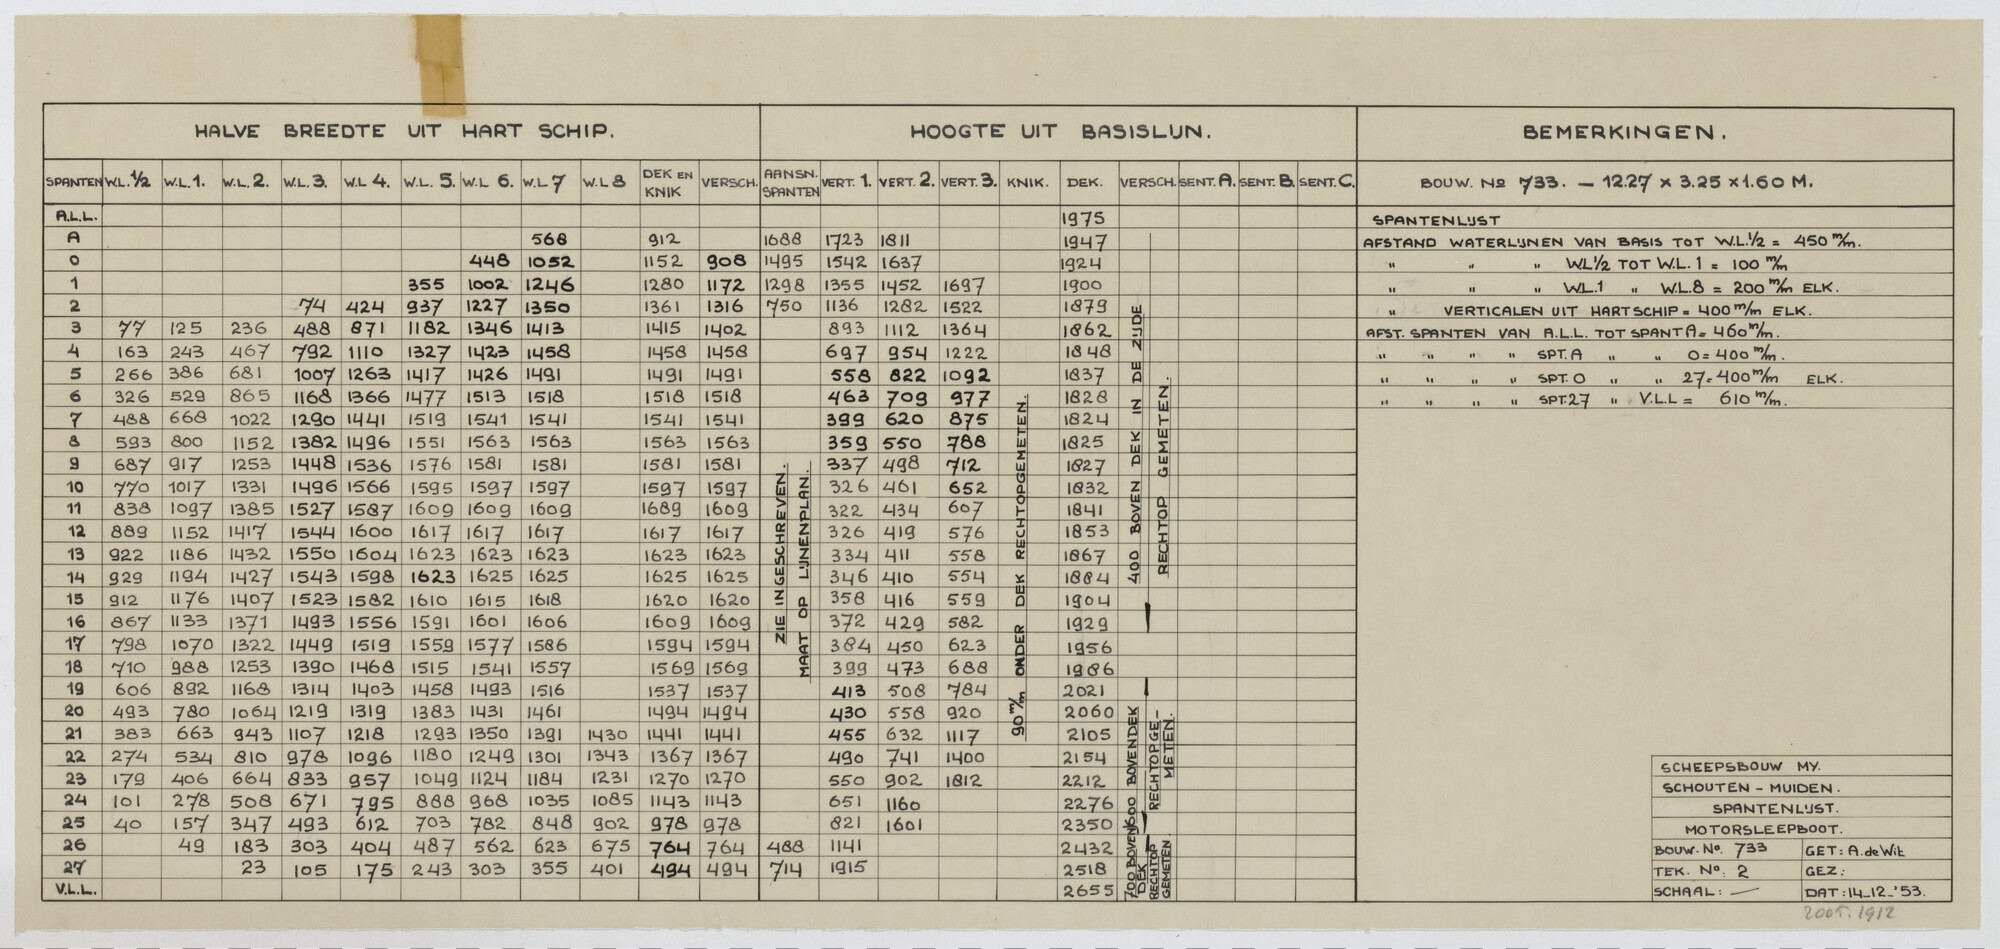 HALVE BREEDTE UIT HART SCHIP. HOOGTE UIT BASISLIJN. BEMERKINGEN.
SPANTEN W.L. 1/2 W.L. 1. W.L. 2. W.L. 3. W.L 4. W.L. 5. W.L 6. W.L 7 W.L 8 DEK EN KNIK VERSCH. AANSN. SPANTEN VERT. 1. VERT. 2. VERT. 3. KNIK. DEK. VERSCH. SENT. A. SENT. B. SENT. C. BOUW. No 733. - 12.27 x 3.25 x 1.60 M.
A.L.L. 1975
A 568 912 1688 1723 1811 1947
0 448 1052 1152 908 1495 1542 1637 1924
1 355 1002 1246 1280 1172 1298 1355 1452 1697 1900
2 74 424 937 1227 1350 1361 1316 750 1136 1282 1522 1879
3 77 125 236 488 871 1182 1346 1413 1415 1402 893 1112 1364 1862
4 163 243 467 792 1110 1327 1423 1458 1458 1458 697 954 1222 1848
5 266 386 681 1007 1263 1417 1426 1491 1491 1491 558 822 1092 1837
6 326 529 865 1168 1366 1477 1513 1518 1518 1518 463 709 977 1828
7 488 668 1022 1290 1441 1519 1541 1541 1541 1541 399 620 875 1824
8 593 800 1152 1382 1496 1551 1563 1563 1563 1563 359 550 788 1825
9 687 917 1253 1448 1536 1576 1581 1581 1581 1581 337 498 712 1827
10 770 1017 1331 1496 1566 1595 1597 1597 1597 1597 326 461 652 1832
11 838 1097 1385 1527 1587 1609 1609 1609 1689 1609 322 434 607 1841
12 889 1152 1417 1544 1600 1617 1617 1617 1617 1617 326 419 576 1853
13 922 1186 1432 1550 1604 1623 1623 1623 1623 1623 334 411 558 1867
14 929 1194 1427 1543 1598 1623 1625 1625 1625 1625 346 410 554 1884
15 912 1176 1407 1523 1582 1610 1615 1618 1620 1620 358 416 559 1904
16 867 1133 1371 1493 1556 1591 1601 1606 1609 1609 372 429 582 1929
17 798 1070 1322 1449 1519 1559 1577 1586 1594 1594 384 450 623 1956
18 710 988 1253 1390 1468 1515 1541 1557 1569 1569 399 473 688 1986
19 606 892 1168 1314 1403 1458 1493 1516 1537 1537 413 508 784 2021
20 493 780 1064 1219 1319 1383 1431 1461 1494 1494 430 558 920 2060
21 383 663 943 1107 1218 1293 1350 1391 1430 1441 1441 455 632 1117 2105
22 274 534 810 978 1096 1180 1249 1301 1343 1367 1367 490 741 1400 2154
23 179 406 664 833 957 1049 1124 1184 1231 1270 1270 550 902 1812 2212
24 101 278 508 671 795 888 968 1035 1085 1143 1143 651 1160 2276
25 40 157 347 493 612 703 782 848 902 978 978 821 1601 2350
26 49 183 303 404 487 562 623 675 764 764 488 1141 2432
27 23 105 175 243 303 355 401 494 494 714 1915 2518
V.L.L. 2655
ZIE INGESCHREVEN.
MAAT OP LIJNENPLAN.
90 m/m ONDER DEK RECHTOPGEMETEN.
400 BOVEN DEK IN DE ZIJDE
RECHTOP GEMETEN.
600 BOVENDEK
RECHTOPGE-
METEN.
700 BOVEN
DEK
RECHTOP
GEMETEN.
SPANTENLIJST
AFSTAND WATERLIJNEN VAN BASIS TOT W.L. 1/2 = 450 m/m.
" " " WL 1/2 TOT W.L. 1 = 100 m/m
" " " W.L.1 " W.L.8 = 200 m/m ELK.
" VERTICALEN UIT HARTSCHIP = 400 m/m ELK.
AFST. SPANTEN VAN A.L.L. TOT SPANT A = 460 m/m.
" " " " SPT. A " " 0 = 400 m/m.
" " " " SPT. 0 " " 27 = 400 m/m ELK.
" " " " SPT. 27 " V.L.L = 610 m/m.
SCHEEPSBOUW MY.
SCHOUTEN - MUIDEN.
SPANTENLIJST.
MOTORSLEEPBOOT.
BOUW. No. 733 GET: A. de Wit
TEK. No: 2 GEZ:
SCHAAL: — DAT: 14-12-'53.
2005.1912